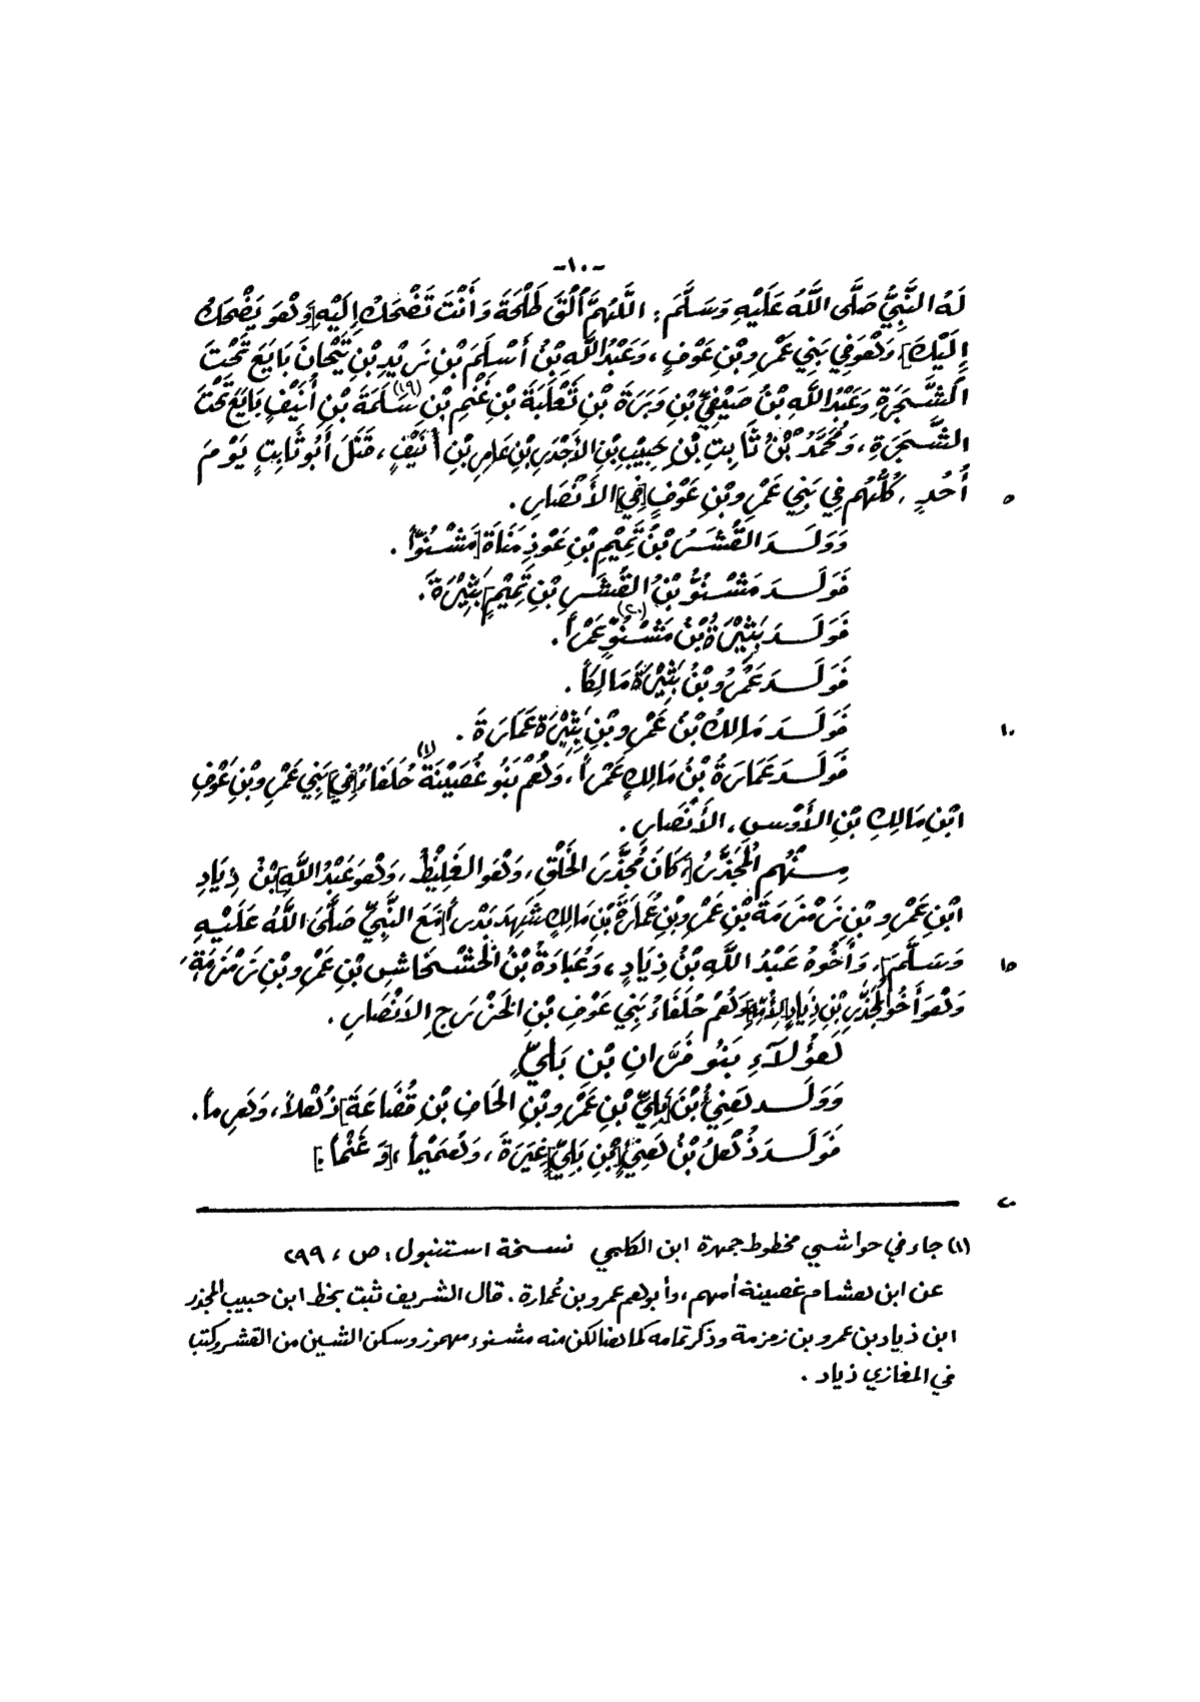 -١٠-
لَهُ النَّبِيُّ صَلَّى اللَّهُ عَلَيْهِ وَسَلَّمَ: اللَّهُمَّ الْقَ طَلْحَةَ وَأَنْتَ تَضْحَكُ إِلَيْهِ [وَهُوَ يَضْحَكُ
إِلَيْكَ]، وَهُوَ فِي بَنِي عَمْرِو بْنِ عَوْفٍ، وَعَبْدُ اللَّهِ بْنُ أَسْلِمَ بْنِ زَيْدِ بْنِ تَيْحَانَ بَايَعَ تَحْتَ
الشَّجَرَةِ وَعَبْدُ اللَّهِ بْنُ صَيْفِيِّ بْنِ وَبَرَةَ بْنِ ثَعْلَبَةَ بْنِ غَنْمِ بْنِ (١٩) سَلَمَةَ بْنِ أُنَيْفٍ بَايَعَ تَحْتَ
الشَّجَرَةِ، وَمُحَمَّدُ بْنُ ثَابِتِ بْنِ حَبِيْبِ بْنِ الأَجْدَرِ بْنِ عَامِرِ بْنِ أُنَيْفٍ، قُتَلَ أَبُو ثَابِتٍ يَوْمَ
أُحُدٍ، كُلُّهُم فِي بَنِي عَمْرِو بْنِ عَوْفٍ [فِي] الأَنْصَارِ. ٥
وَوَلَدَ القُشَرُ بْنُ تَمِيْمِ بْنِ عَوْذِ مَنَاةَ [مَشْنُوّاً].
فَوَلَدَ مَشْنُوُّ بْنُ القُشَرِ بْنِ تَمِيْمٍ بَثِيْرَةَ.
فَوَلَدَ بَثِيْرَةُ بْنُ مَشْنُوٍّ (٢٠) عَمْراً.
فَوَلَدَ عَمْرُو بْنُ بَثِيْرَةَ مَالِكاً.
فَوَلَدَ مَالِكُ بْنُ عَمْرِو بْنِ بَثِيْرَةَ عَمَارَةَ. ١٠
فَوَلَدَ عَمَارَةُ بْنُ مَالِكٍ عَمْراً، وَهُمْ بَنُو غُصَيْنَةَ (١) حُلَفَاءُ [فِي] بَنِي عَمْرِو بْنِ عَوْفِ
ابْنِ مَالِكِ بْنِ الأَوْسِ، الأَنْصَارِ.
مِنْهُم الْمُجَذَّرُ [كَانَ مُجَذَّرَ الخَلْقِ، وَهُوَ الغَلِيْظُ، وَهُوَ عَبْدُ اللَّهِ] بْنُ ذِيَادِ
ابْنِ عَمْرِو بْنِ زَمْزَمَةَ بْنِ عَمْرِو بْنِ عَمَارَةَ بْنِ مَالِكٍ شَهِدَ بَدْراً [مَعَ النَّبِيِّ صَلَّى اللَّهُ عَلَيْهِ
وَسَلَّمَ]، وَأَخُوهُ عَبْدُ اللَّهِ بْنُ ذِيَادٍ، وَعُبَادَةُ بْنُ الخَشْخَاشِ بْنِ عَمْرِو بْنِ زَمْزَمَةَ، ١٥
وَهُوَ أَخُو الْمُجَذَّرِ بْنِ ذِيَادٍ [لأُمِّهِ] وَهُمْ حُلَفَاءُ بَنِي عَوْفِ بْنِ الخَزْرَجِ الأَنْصَارِ.
هَؤُلَاءِ بَنُو فَرَّانِ بْنِ بَلِيٍّ
وَوَلَدَ هَنِيُّ بْنُ [بَلِيِّ بْنِ عَمْرِو بْنِ الحَافِ بْنِ قُضَاعَةَ] ذُهْلاً، وَهَرِماً.
فَوَلَدَ ذُهْلُ بْنُ هَنِيِّ [بْنِ بَلِيٍّ] غِيَرَةَ، وَهُمَيْماً، [وَ غَنْماً:]
٢٠
(١) جاء في حواشي مخطوط جمهرة ابن الكلبي نسخة استنبول: ص، ٢٩٩
عن ابن هشام غصينة أمهم، وأبوهم عمرو بن عُمارة. قال الشريف ثبت بخط ابن حبيب المجذر
ابن ذياد بن عمرو بن زمزمة وذكر تمامه كما هنا لكن منه مشنوء مهموز وسكن الشين من القشر وكتب
في المغازي ذياد.